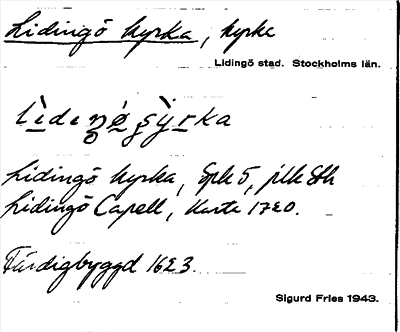 Lidingö kyrka, kyrka
Lidingö stad. Stockholms län.
Lidingö kyrka, Spk 5, jlk Sth
Lidingö Capell, Karta 1720.
Färdigbyggd 1623.
Sigurd Fries 1943.